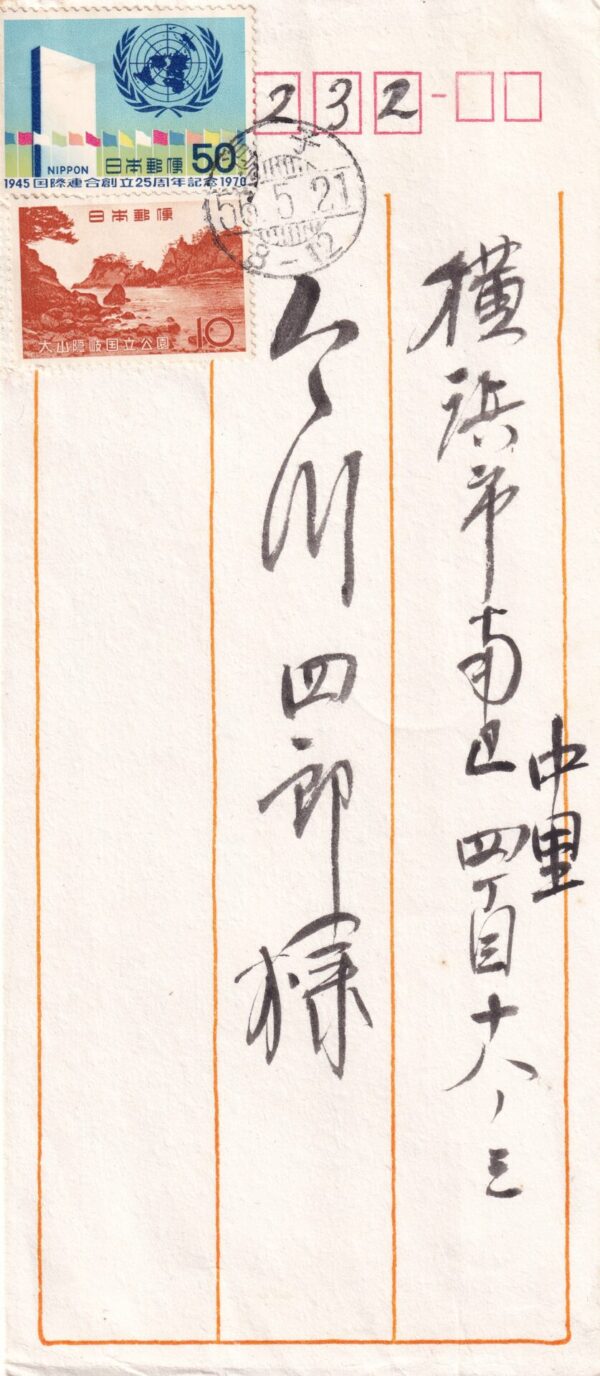 NIPPON 日本郵便 50
1945 国際連合創立25周年記念 1970
日本郵便
10
大山隠岐国立公園
232
56.5.21
8-12
横浜市南区中里四丁目十八ノ三
今川四郎様